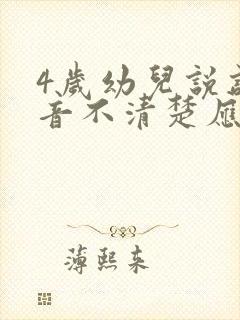 4歲幼兒說
音不清楚應
薄熙来